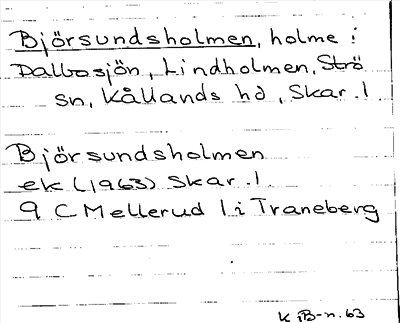 Björsundsholmen, holme i
Dalbosjön, Lindholmen, Strö
sn, Kållands hd, Skar. l
Björsundsholmen
ek (1963) Skar. l.
9 C Mellerud l i Traneberg
K B-n. 63